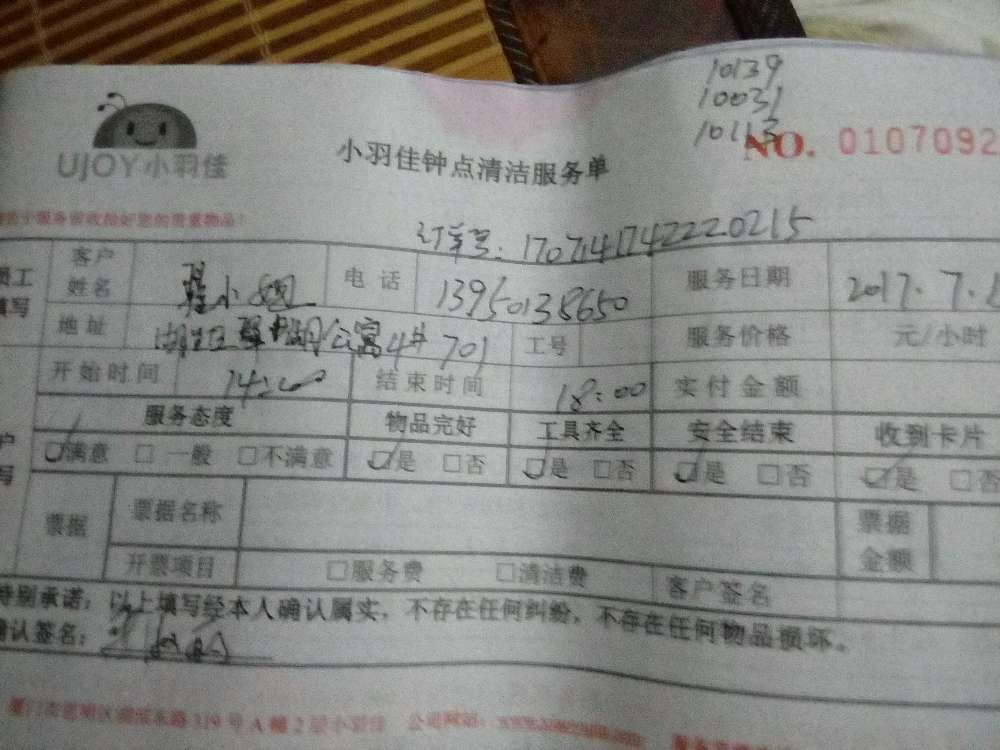 10139
10031
10113
NO. 0107092
UJOY小羽佳
小羽佳钟点清洁服务单
订单号:1707141742220215
客户姓名 小姐 电话 13950138650 服务日期 2017.7.
地址 湖公寓4# 701 工号 服务价格 元/小时
开始时间 14:00 结束时间 18:00 实付金额
服务态度 物品完好 工具齐全 安全结束 收到卡片
☑满意 □一般 □不满意 ☑是 □否 ☑是 □否 ☑是 □否 ☑是 □否
票据 票据名称 票据金额
开票项目 □服务费 □清洁费 客户签名
特别承诺:以上填写经本人确认属实,不存在任何纠纷,不存在任何物品损坏。
确认签名:
119号A幢2层小羽佳 公司网站: